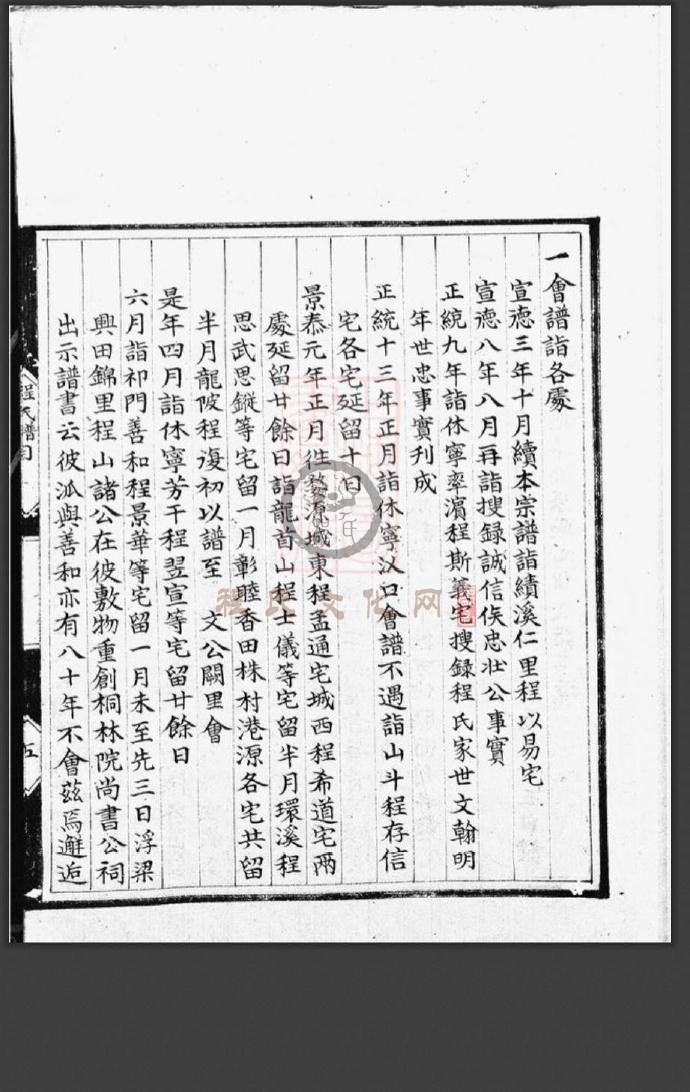 一會譜詣各處
宣德三年十月續本宗譜詣績溪仁里程以易宅
宣德八年八月再詣搜録誠信侯忠壯公事實
正統九年詣休寧率濱程斯義宅搜録程氏家世文翰明
年世忠事實刋成
正統十三年正月詣休寧汊口會譜不遇詣山斗程存信
宅各宅延留十日
景泰元年正月徃婺源城東程孟通宅城西程希道宅兩
處延留廿餘日詣龍首山程士儀等宅留半月環溪程
思武思鏦等宅留一月彰睦香田株村港源各宅共留
半月龍陂程復初以譜至 文公闕里會
是年四月詣休寧芳干程翌宣等宅留廿餘日
六月詣祁門善和程景華等宅留一月未至先三日浮梁
興田錦里程山諸公在彼敷物重創桐林院尚書公祠
出示譜書云彼派與善和亦有八十年不會茲焉邂逅
程氏譜
五
程氏文化网